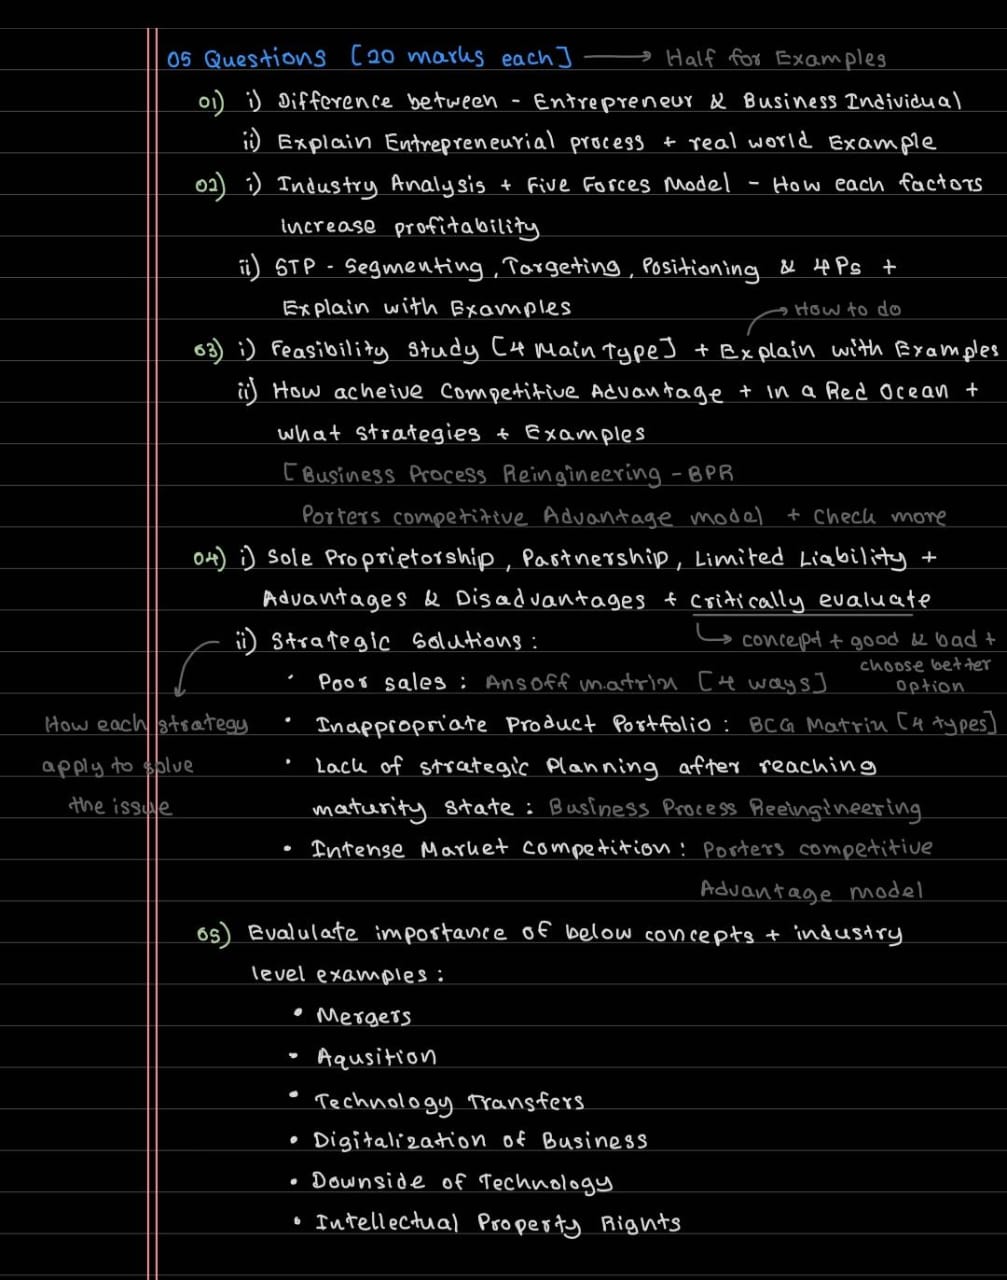 05 Questions [20 marks each] → Half for Examples
01) i) Difference between - Entrepreneur & Business Individual
ii) Explain Entrepreneurial process + real world Example
02) i) Industry Analysis + Five Forces Model - How each factors
Increase profitability
ii) STP - Segmenting, Targeting, Positioning & 4Ps +
Explain with Examples
→ How to do
03) i) Feasibility Study [4 Main Type] + Explain with Examples
ii) How acheive Competitive Advantage + In a Red Ocean +
what strategies + Examples
[Business Process Reingineering - BPR
Porters competitive Advantage model + Check more
04) i) Sole Proprietorship, Partnership, Limited Liability +
Advantages & Disadvantages + critically evaluate
→ concept + good & bad +
choose better
option
ii) Strategic Solutions:
How each strategy
apply to solve
the issue
• Poor sales: Ansoff matrix [4 ways]
• Inappropriate Product Portfolio: BCG Matrix [4 types]
• Lack of strategic Planning after reaching
maturity state: Business Process Reeingineering
• Intense Market Competition: Porters competitive
Advantage model
05) Evalulate importance of below concepts + industry
level examples:
• Mergers
• Aqusition
• Technology Transfers
• Digitalization of Business
• Downside of Technology
• Intellectual Property Rights